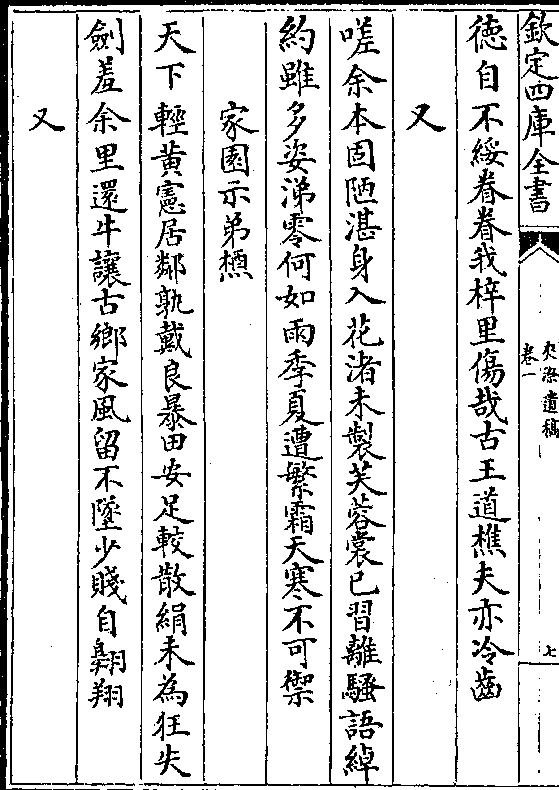 欽定四庫全書
夾漈遺稿
卷一
七
德自不綏眷眷我梓里傷哉古王道樵夫亦冷齒
又
嗟余本固陋湛身入花渚未製芙蓉裳已習離騷語綽
約雖多姿涕零何如雨季夏遭繁霜天寒不可禦
家園示弟槱
天下輕黃憲居鄰孰戴良暴田安足較散絹未為狂失
劍羞余里還牛讓古鄉家風留不墜少賤自翺翔
又